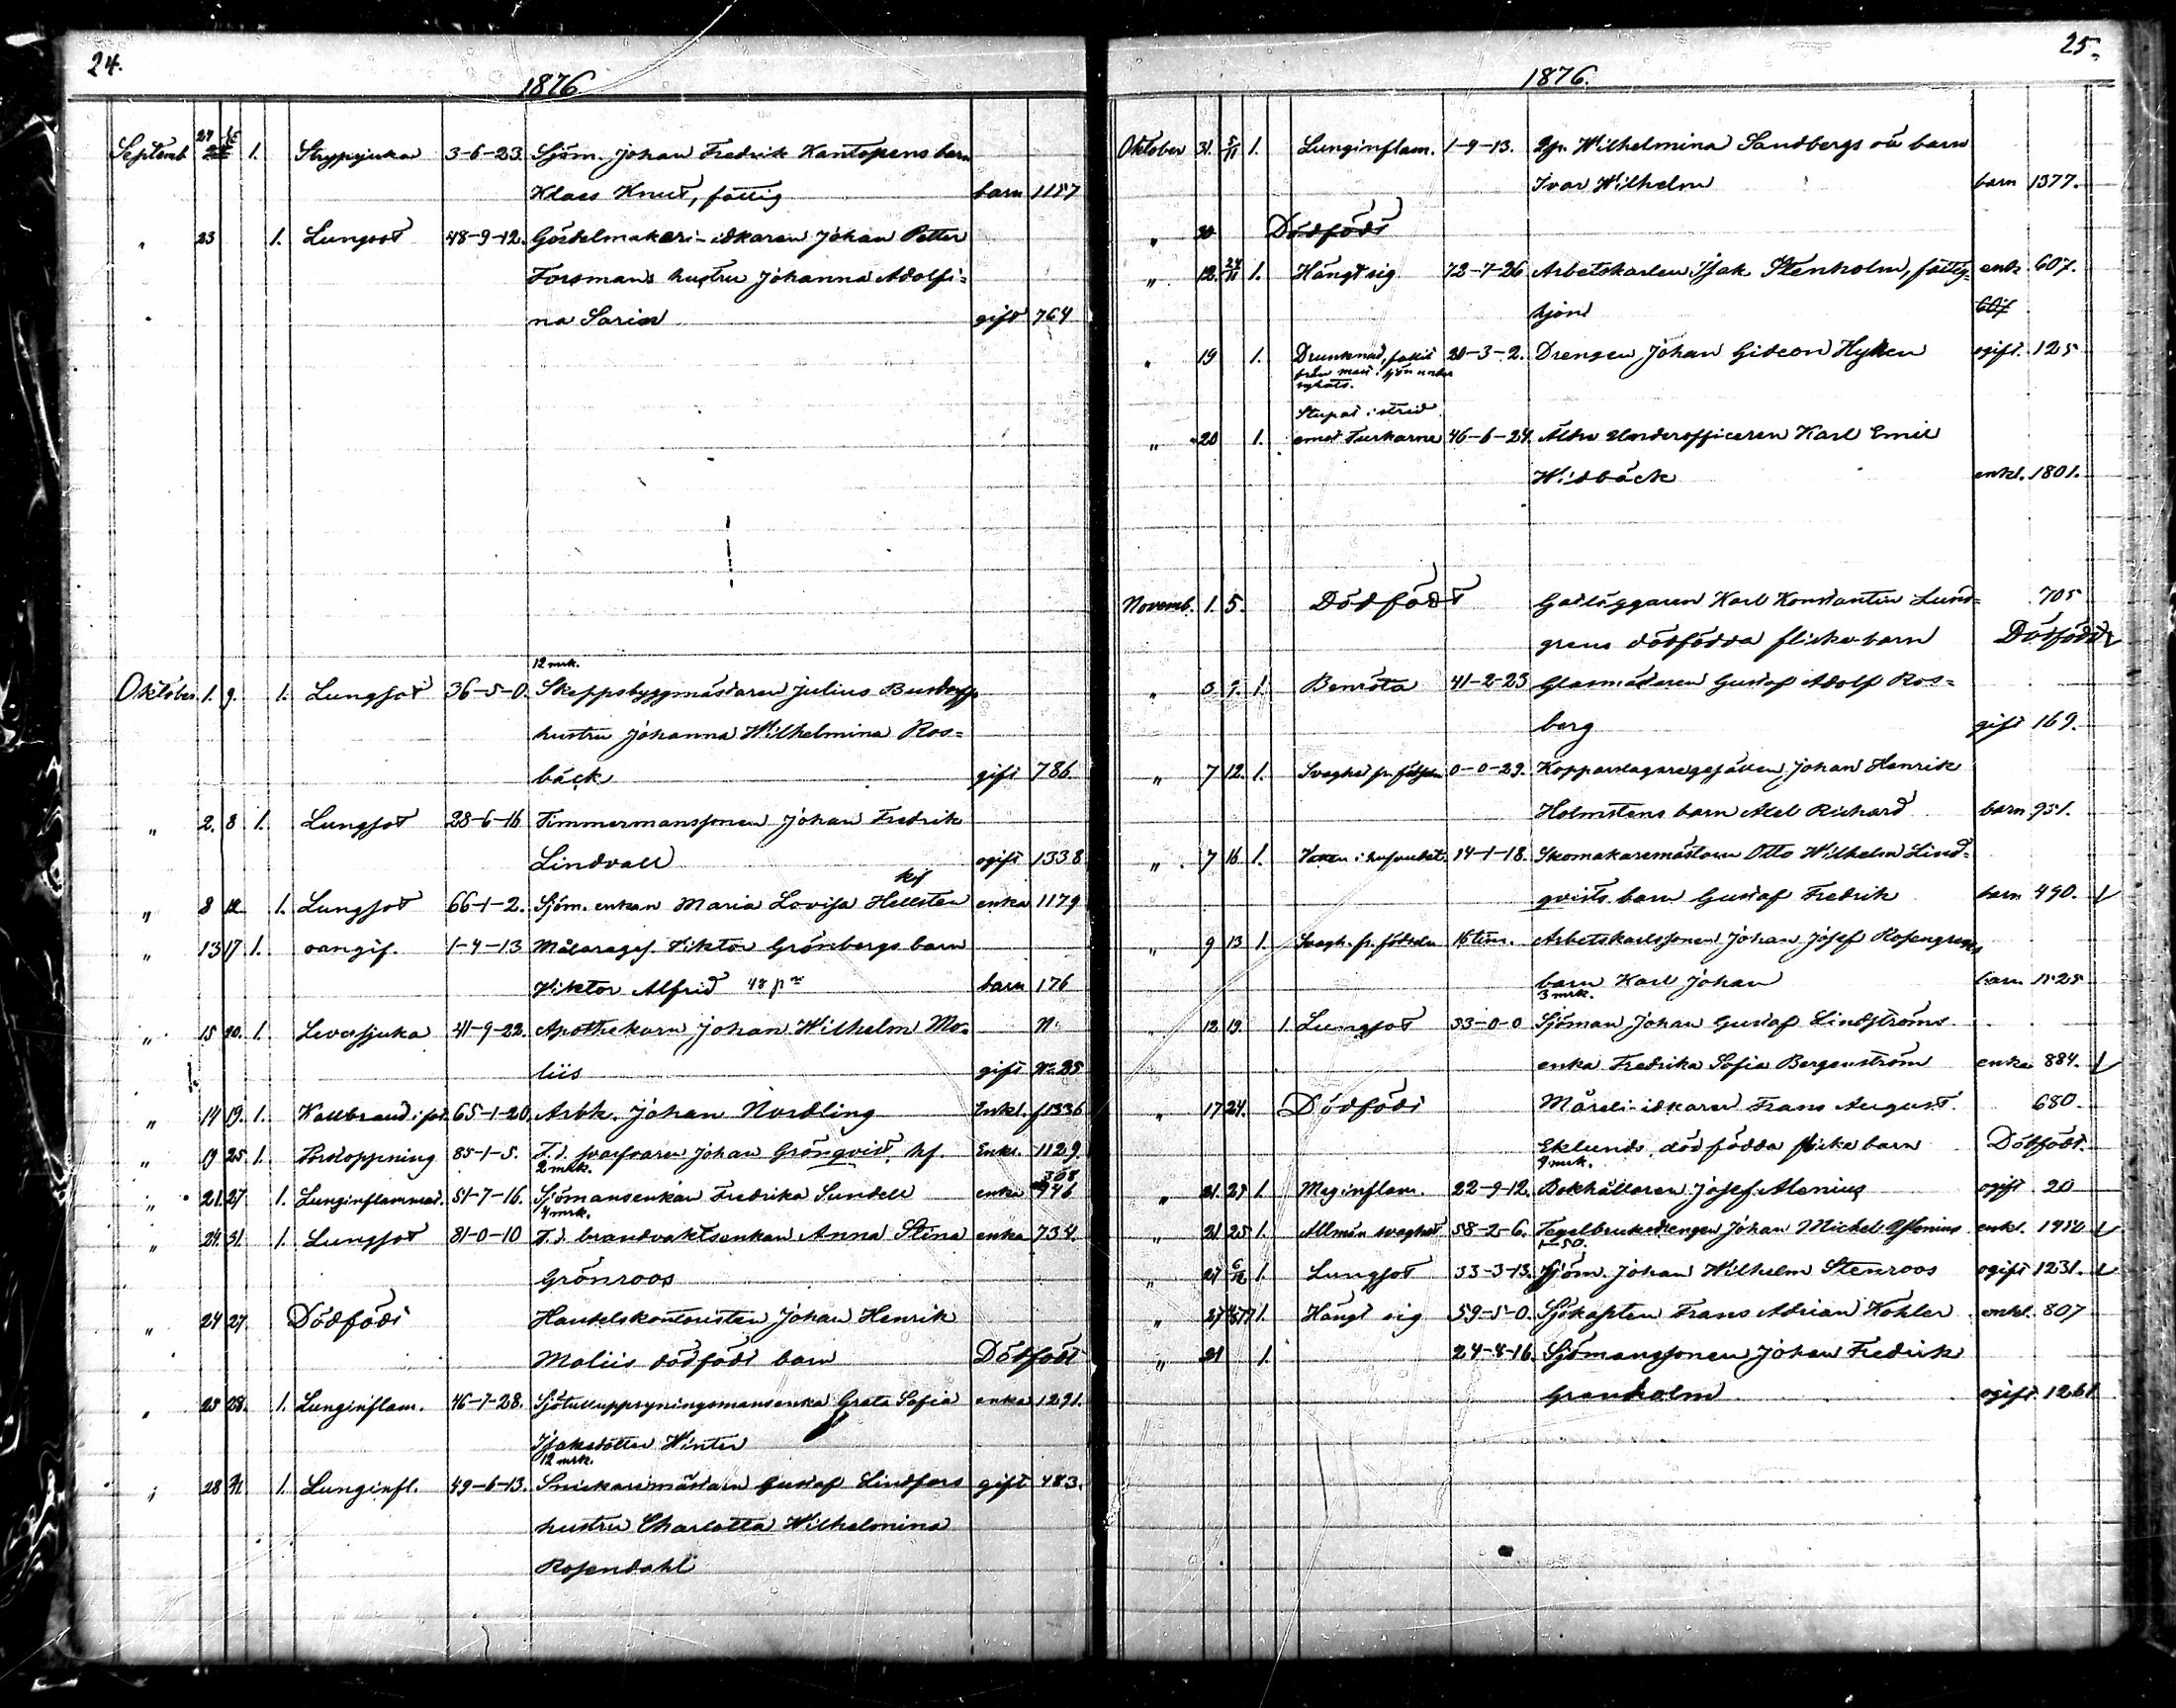 24.
1876
Septemb 1. Strypsjuka 3-6-23. Sjöm. Johan Fredrik Kantopens barn
Klaes Knut, fattig barn 1187
" 23 1. Lungsot 48-9-12. Gördelmakeri-idkaren Johan Petter
Forsmans hustru Johanna Adolfi=
na Sarin gift 764
12 mrk.
Oktober 1. 9. 1. Lungsot 36-5-0. Skeppsbyggmästaren Julius
hustru Johanna Wilhelmina Ros=
bäck gift 786
" 2. 8 1. Lungsot 28-6-16 Timmermanssonen Johan Fredrik
Lindvall ogift 1338
" 8 12. 1. Lungsot 66-1-2. Sjöm. enkan Maria Lovisa Hellsten enka 1179
" 13 17 1. oangif. 1-4-13 Målareges. Viktor Grönbergs barn
Viktor Alfrid barn 176
" 15 20. 1. Leversjuka 41-9-22. Apothekarn Johan Wilhelm Mo=
liis gift 25
" 14 19. 1. Kallbrand i fot. 65-1-20. Arbk. Johan Nordling Enkl. 1336
" 19 25 1. Förstoppning 85-1-5. F.d. svarfvaren Johan Grönqvist, hf. Enkl. 1129.
2 mrk. 308
" 21. 27. 1. Lunginflammat. 51-7-16. Sjömansenkan Fredrika Sundell enka 946
4 mrk.
" 24. 31. 1. Lungsot 81-0-10 F.d. brandvaktsenkan Anna Stina enka 734.
Grönroos
" 24 27 Dödfödt Handelskontoristen Johan Henrik
Moliis dödfödt barn Dödfödt
" 25 28. 1. Lunginflam. 46-7-28. Sjötulluppsyningsmansenka Greta Sofia enka 1291.
Isaksdotter Winter
12 mrk.
" 28 31. 1. Lunginfl. 49-6-13. Snickaremästarn Gustaf Lindfors gift 483.
hustru Charlotta Wilhelmina
Rosendahl
25.
1876.
Oktober 31. 5/11 1. Lunginflam. 1-9-13. Wilhelmina Sandbergs oä barn
Ivar Wilhelm barn 1377.
" 30 Dödfödt
" 12. 24/11 1. Hängt sig 72-7-26 Arbetskarlen Isak Stenholm, fattig= enk. 607.
hjon 607
" 19 1. Drunknad, 20-3-2. Drengen Johan Gideon Hyken ogift. 125
Stupat i strid
" 20 1. emot Turkarne 46-6-24. Äldre Underofficeren Karl Emil
Widbäck enkl. 1801.
Novemb. 1. 5. Dödfödt Garläggaren Karl Konstantin Lund= 705
grens dödfödda flickebarn Dödfödt
" 3. 9. 1. Benröta 41-2-23 Glasmästaren Gustaf Adolf Ros=
berg gift 169.
" 7 12. 1. Svaghet fr. födseln 0-0-29. Kopparslagaregesällen Johan Henrik
Holmstens barn Axel Richard barn 951.
" 7 16 1. 14-1-18. Skomakaremästaren Otto Wilhelm Lind=
qvists barn Gustaf Fredrik barn 490.
" 9 13 1. Svagh. fr. födseln 16 tim. Arbetskarlssonen Johan Josef Rosengrens
barn Karl Johan barn 1525
3 mrk.
" 12 19. 1. Lungsot 53-0-0 Sjöman Johan Gustaf Lindströms
enka Fredrika Sofia Bergenström enka 884.
" 17 24. Dödfödt Måleri-idkaren Frans August 680.
Eklunds dödfödda flickebarn Dödfödt.
9 mrk.
" 21. 27 1. Maginflam. 22-9-12. Bokhållaren Josef Alenius ogift 20
" 21 25 1. Allmän svaghet 58-2-6. Tegelbruksdrengen Johan Michel enkl.
" 27 6/12 1. Lungsot 33-3-13. Sjöm. Johan Wilhelm Stenroos ogift 1231.
" 27 1. Hängt sig 59-5-0. Sjökapten Frans Adrian Köhler enkl. 807
" 21 1. 24-8-16. Sjömanssonen Johan Fredrik
Granholm ogift. 1261